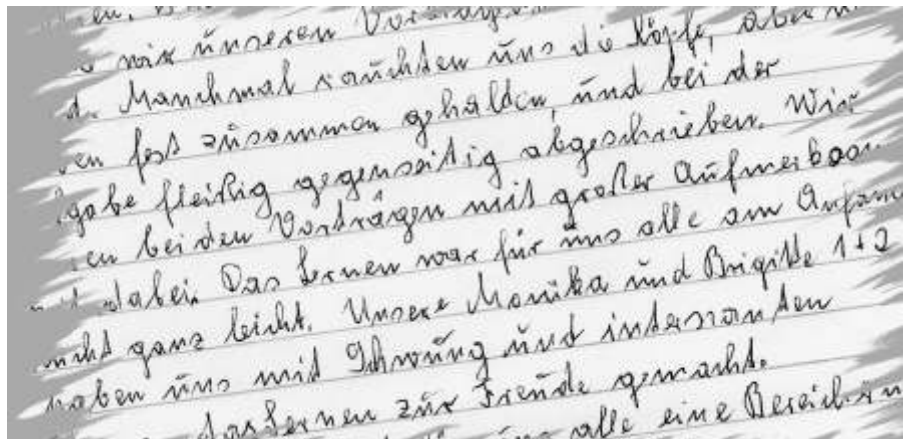 wir unseren
Manchmal rauchten uns die Köpfe, aber
en fest zusammen gehalten und bei der
gabe fleißig gegenseitig abgeschrieben. Wir
en bei den Vorträgen mit großer Aufmerksam
mit dabei. Das Lernen war für uns alle am Anfang
nicht ganz leicht. Unsere Monika und Brigitte 1+2
haben uns mit Schwung und interssanten
das Lernen zur Freude gemacht.
alle eine Bereicherun